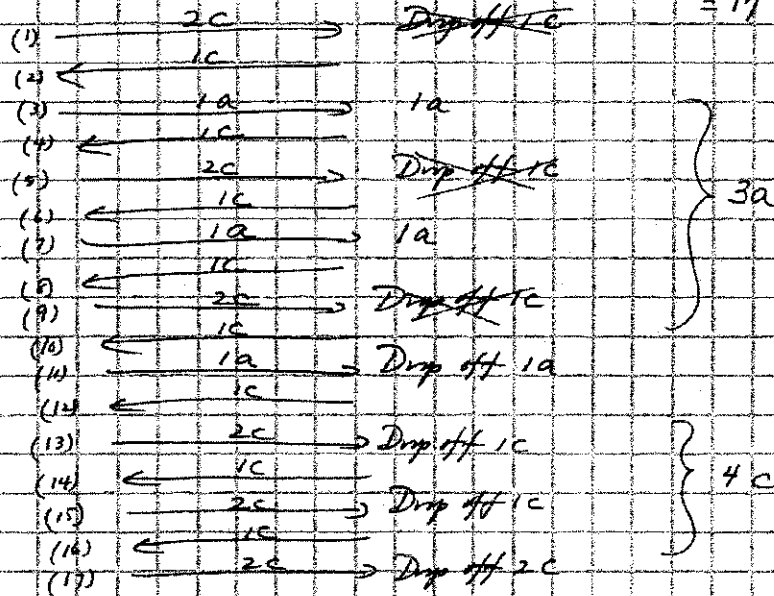 = 17
(1) 2C Drop off 1C
(2) 1C
(3) 1a 1a
(4) 1C
(5) 2C Drop off 1C
(6) 1C
(7) 1a 1a
3a
(8) 1C
(9) 2C Drop off 1C
(10) 1C
(11) 1a Drop off 1a
(12) 1C
(13) 2C Drop off 1C
(14) 1C
4 C
(15) 2C Drop off 1C
(16) 1C
(17) 2C Drop off 2C